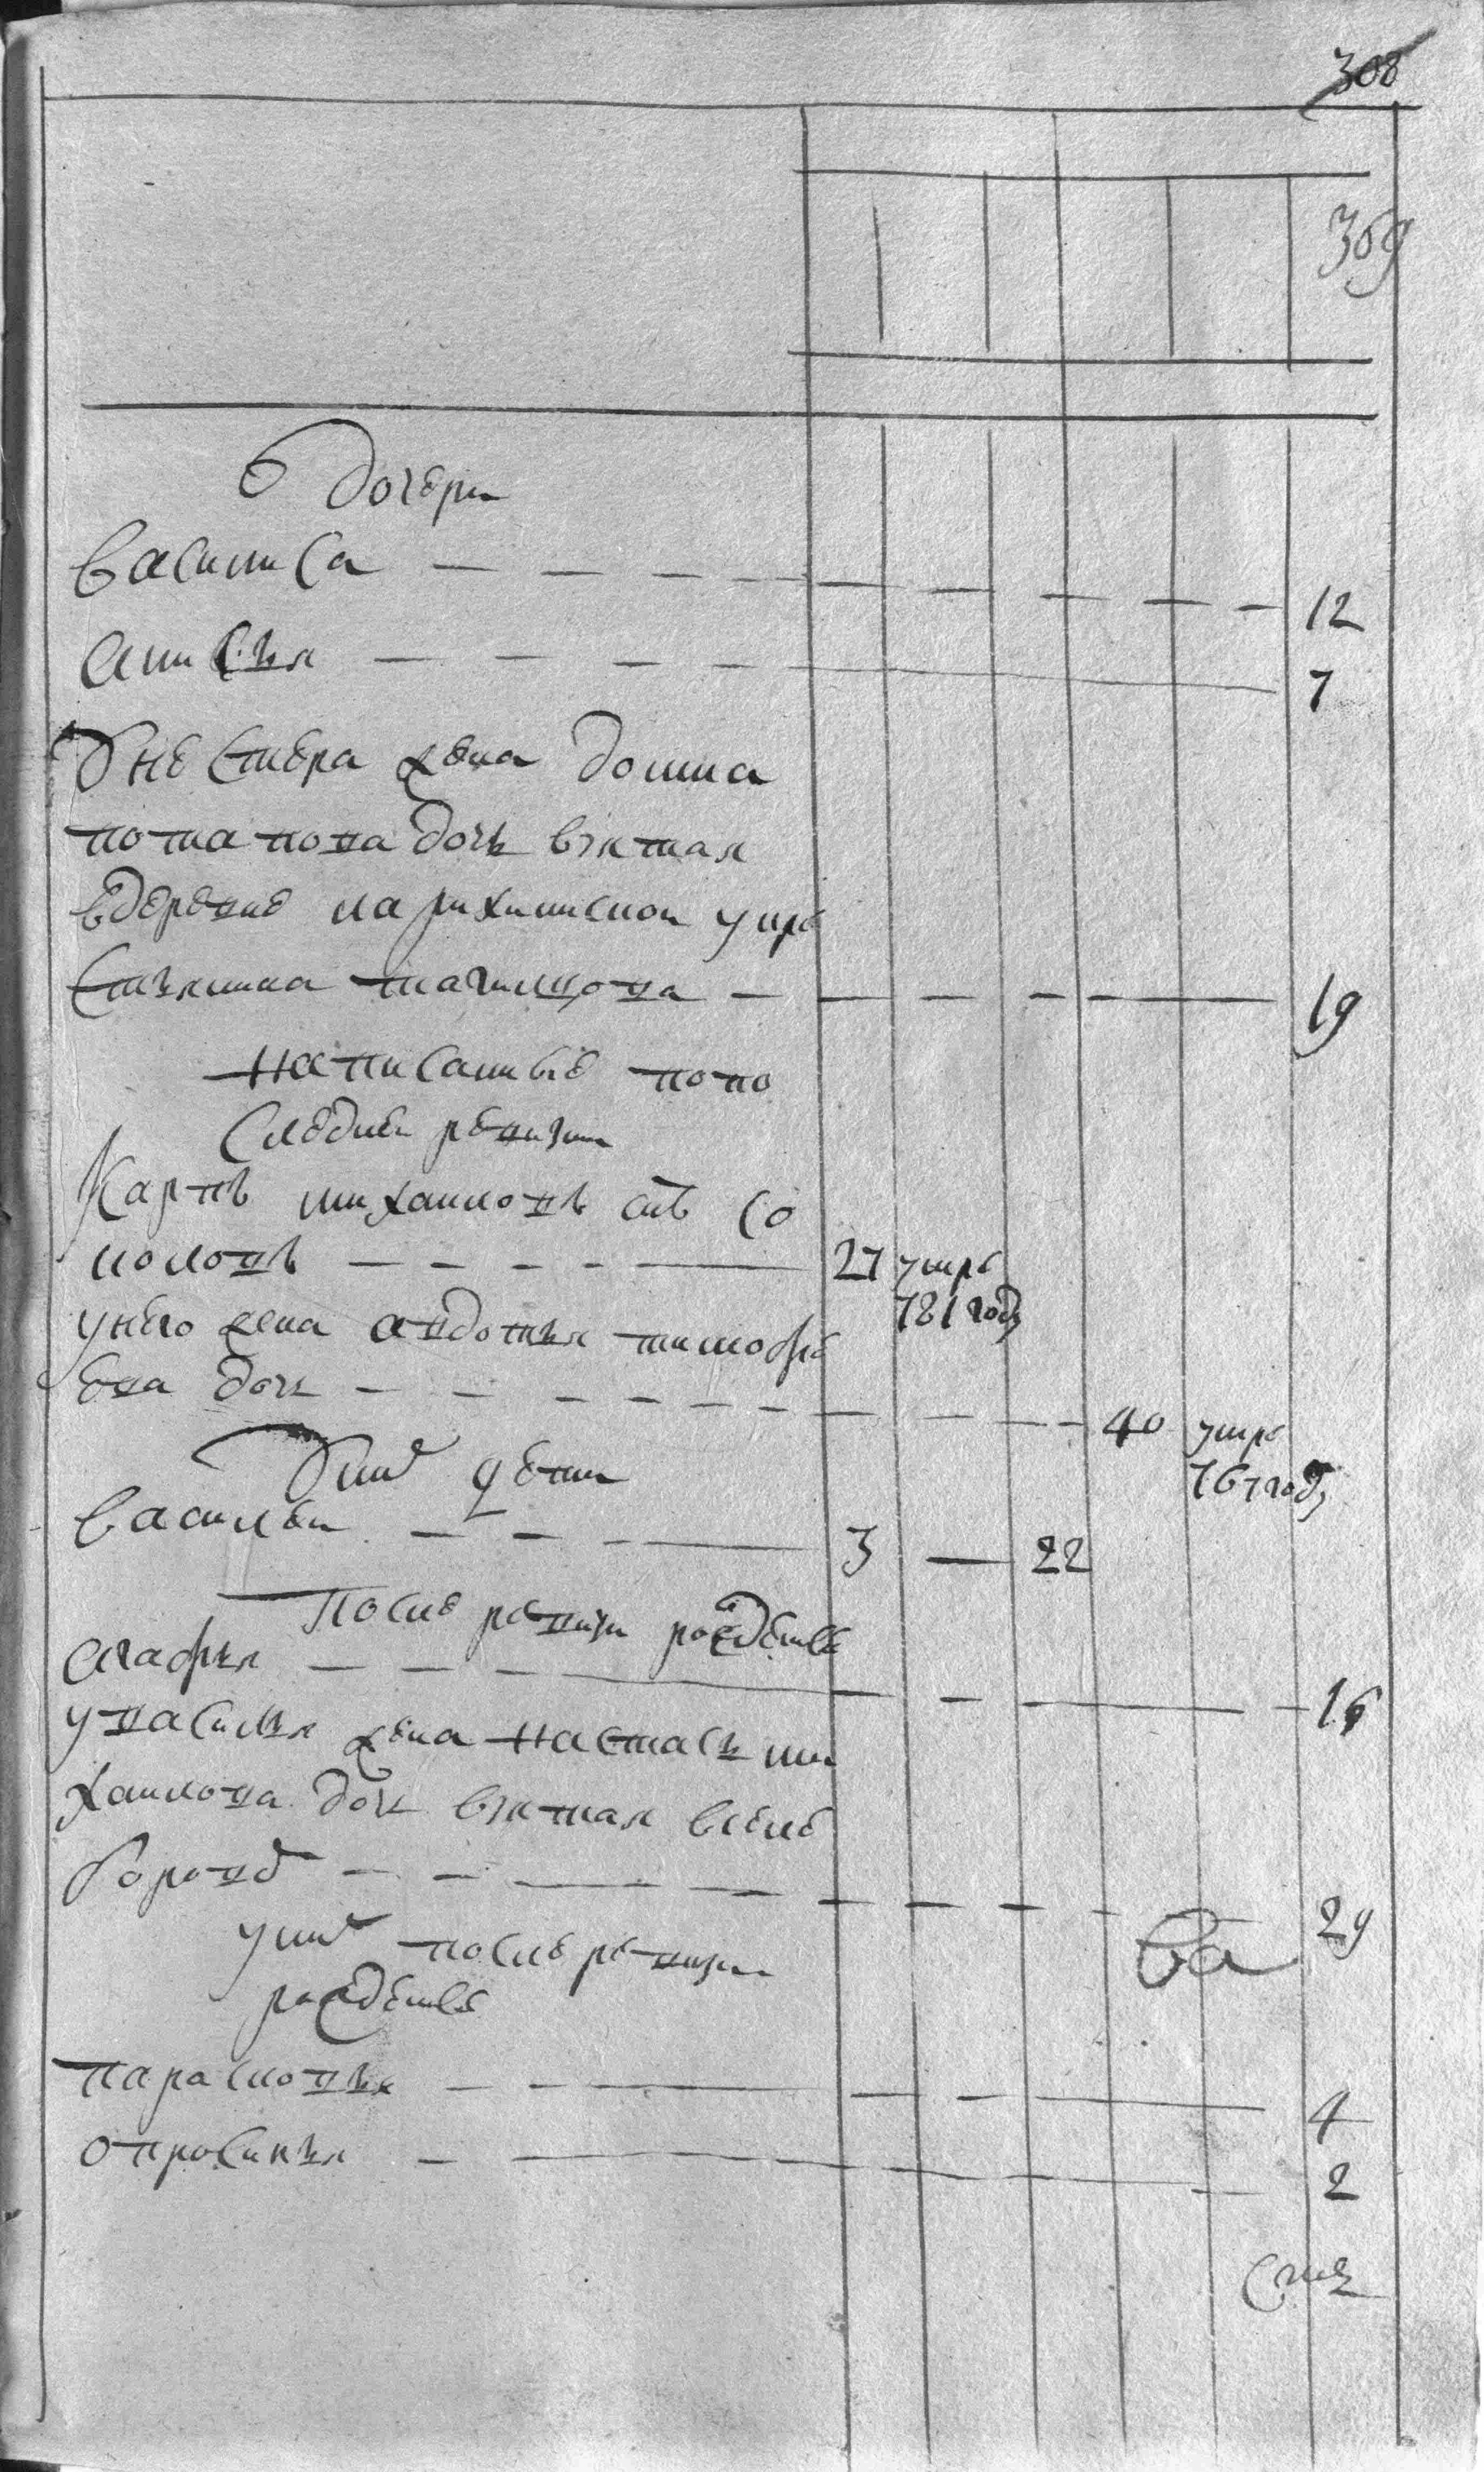 308
369
дочери
василиса 12
анисья 7
У нестера жена домна
потапова дочь взятая
в деревне на ри умре
стьянина 19
написанные по по
следней ревизии
Карпъ михаиловъ снъ со
коловъ 27 умре
781 году
у него жена авдотья тимофе
ева дочь 40 умре
767 году
У них дети
василеи 3 22
После ревизи рожденые
агафья 16
у василья жена настасья ми
хаилова дочь взятая в селе
29
у них после ревизии
рожденые
ва
парасковья 4
опросинья 2